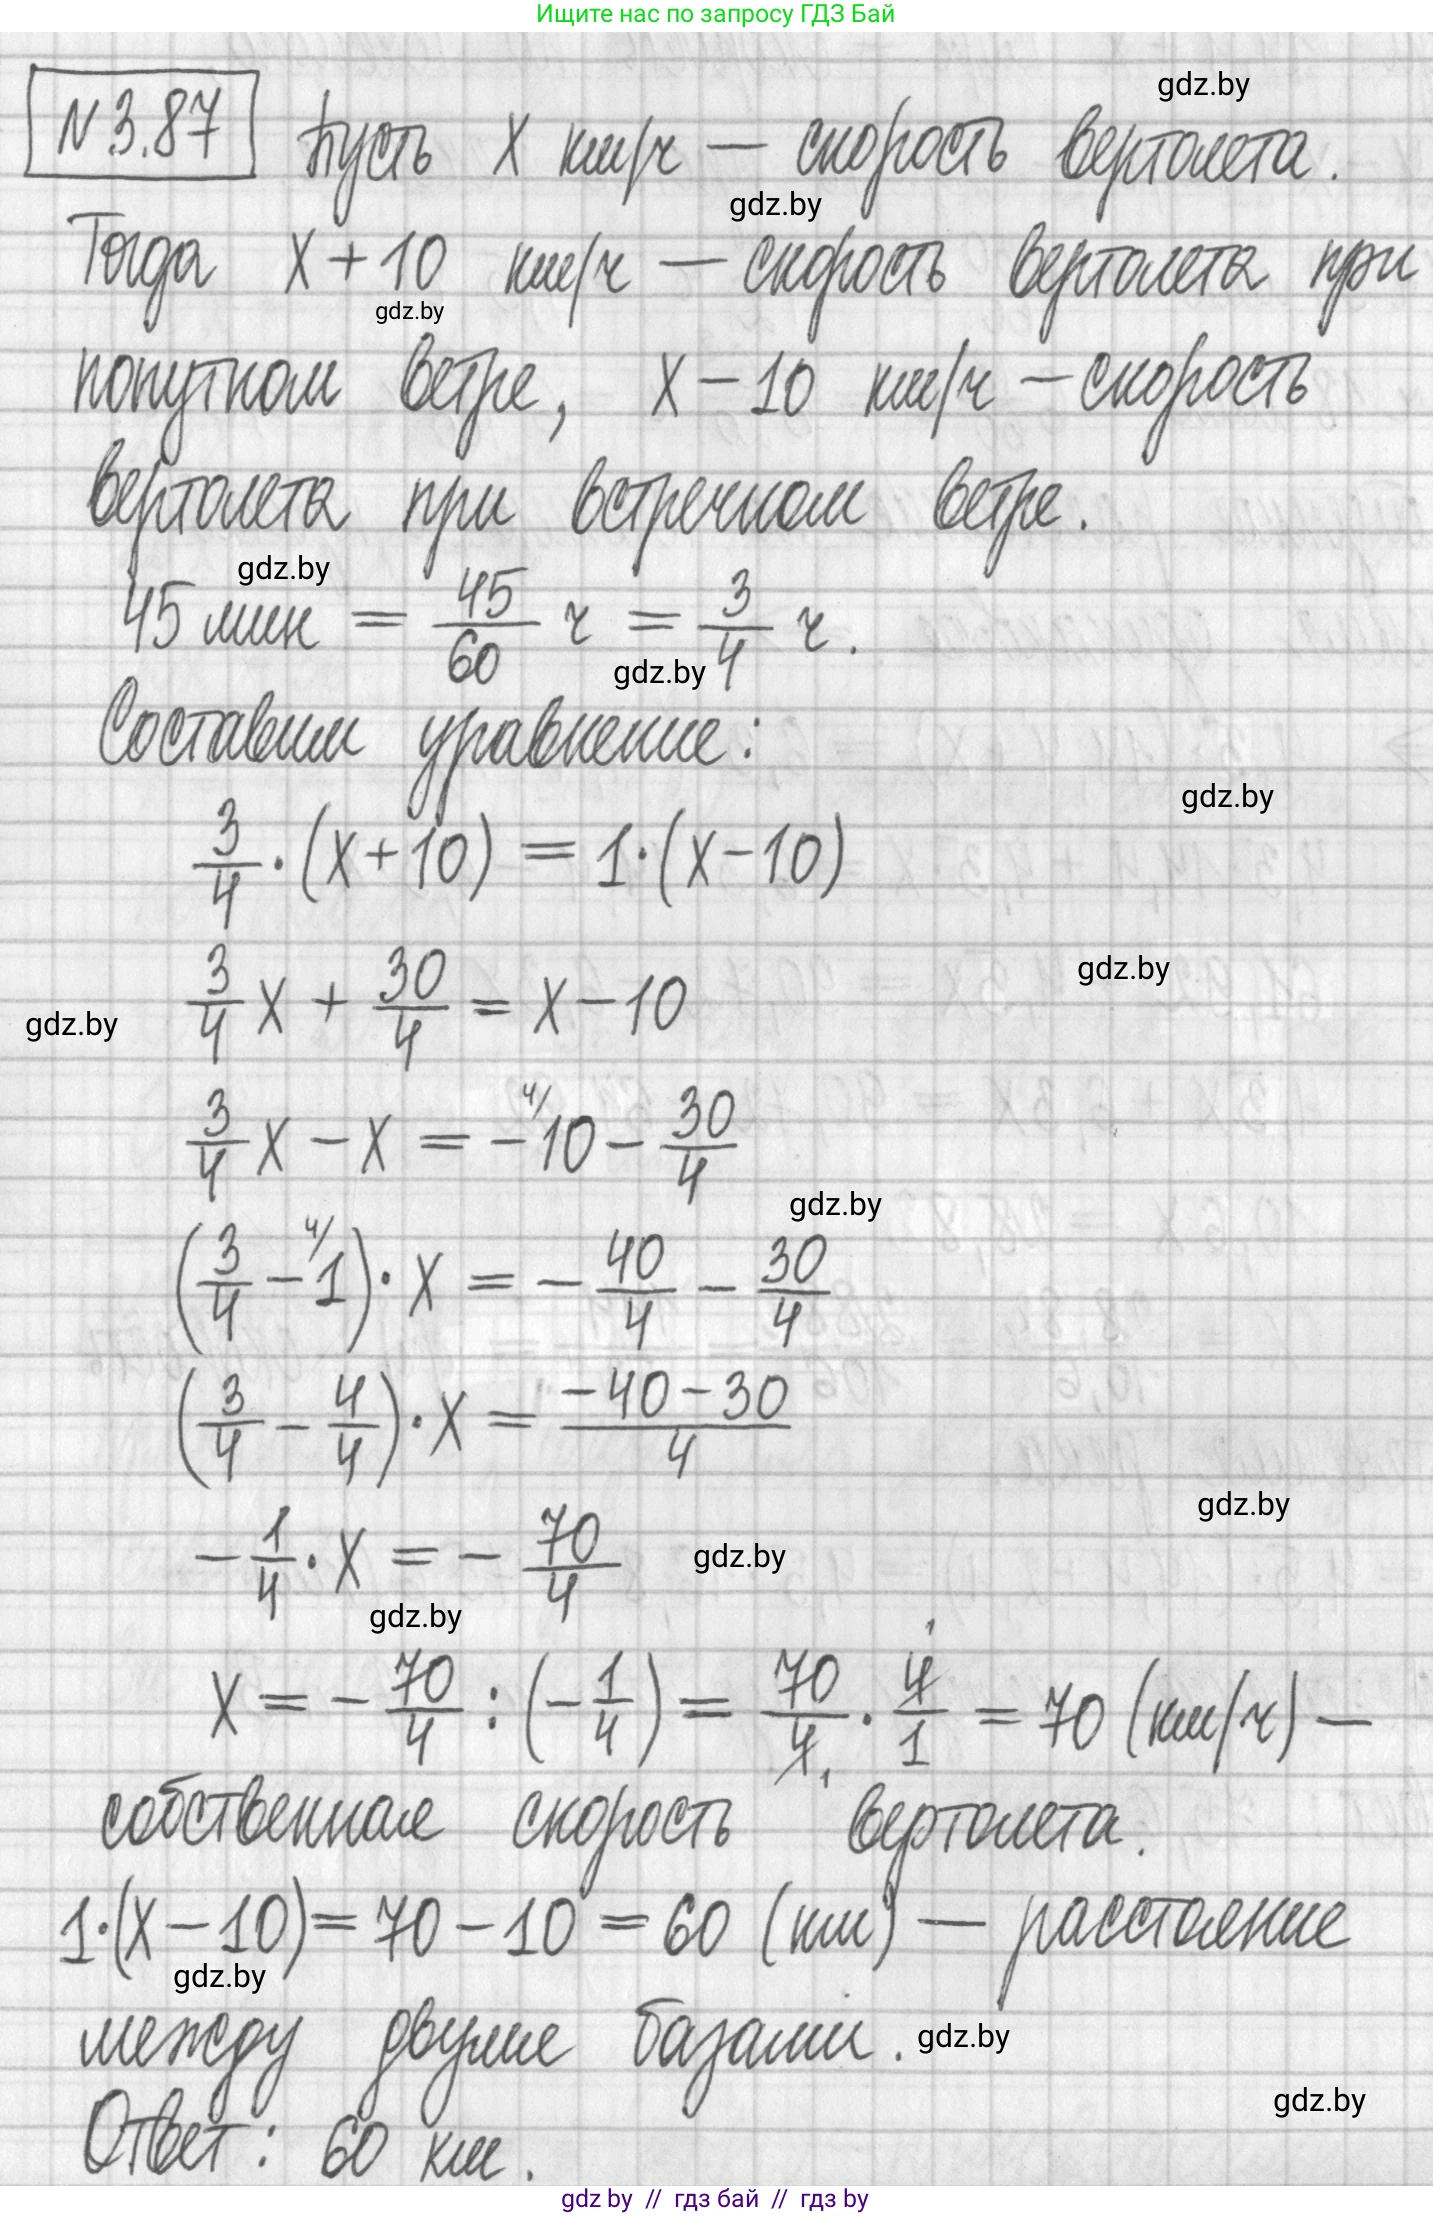 Ищите нас по запросу ГДЗ Бай
gdz.by
N 3.87 Пусть x км/ч — скорость вертолета.
gdz.by
Тогда x + 10 км/ч — скорость вертолета при
gdz.by
попутном ветре, x − 10 км/ч — скорость
вертолета при встречном ветре.
gdz.by
45 мин = 45/60 ч = 3/4 ч.
gdz.by
Составим уравнение:
gdz.by
3/4 · (x + 10) = 1 · (x − 10)
gdz.by
3/4 x + 30/4 = x − 10
gdz.by
3/4 x − x = − 4/ 10 − 30/4
gdz.by
(3/4 − 4/ 1) · x = − 40/4 − 30/4
(3/4 − 4/4) · x = (−40 − 30)/4
gdz.by
− 1/4 · x = − 70/4
gdz.by
gdz.by
x = − 70/4 : (− 1/4) = 70/4 1 · 4 1/1 = 70 (км/ч) —
собственная скорость вертолета.
1·(x − 10) = 70 − 10 = 60 (км) — расстояние
gdz.by
между двумя базами.
gdz.by
gdz.by
Ответ: 60 км.
gdz by // гдз бай // гдз by